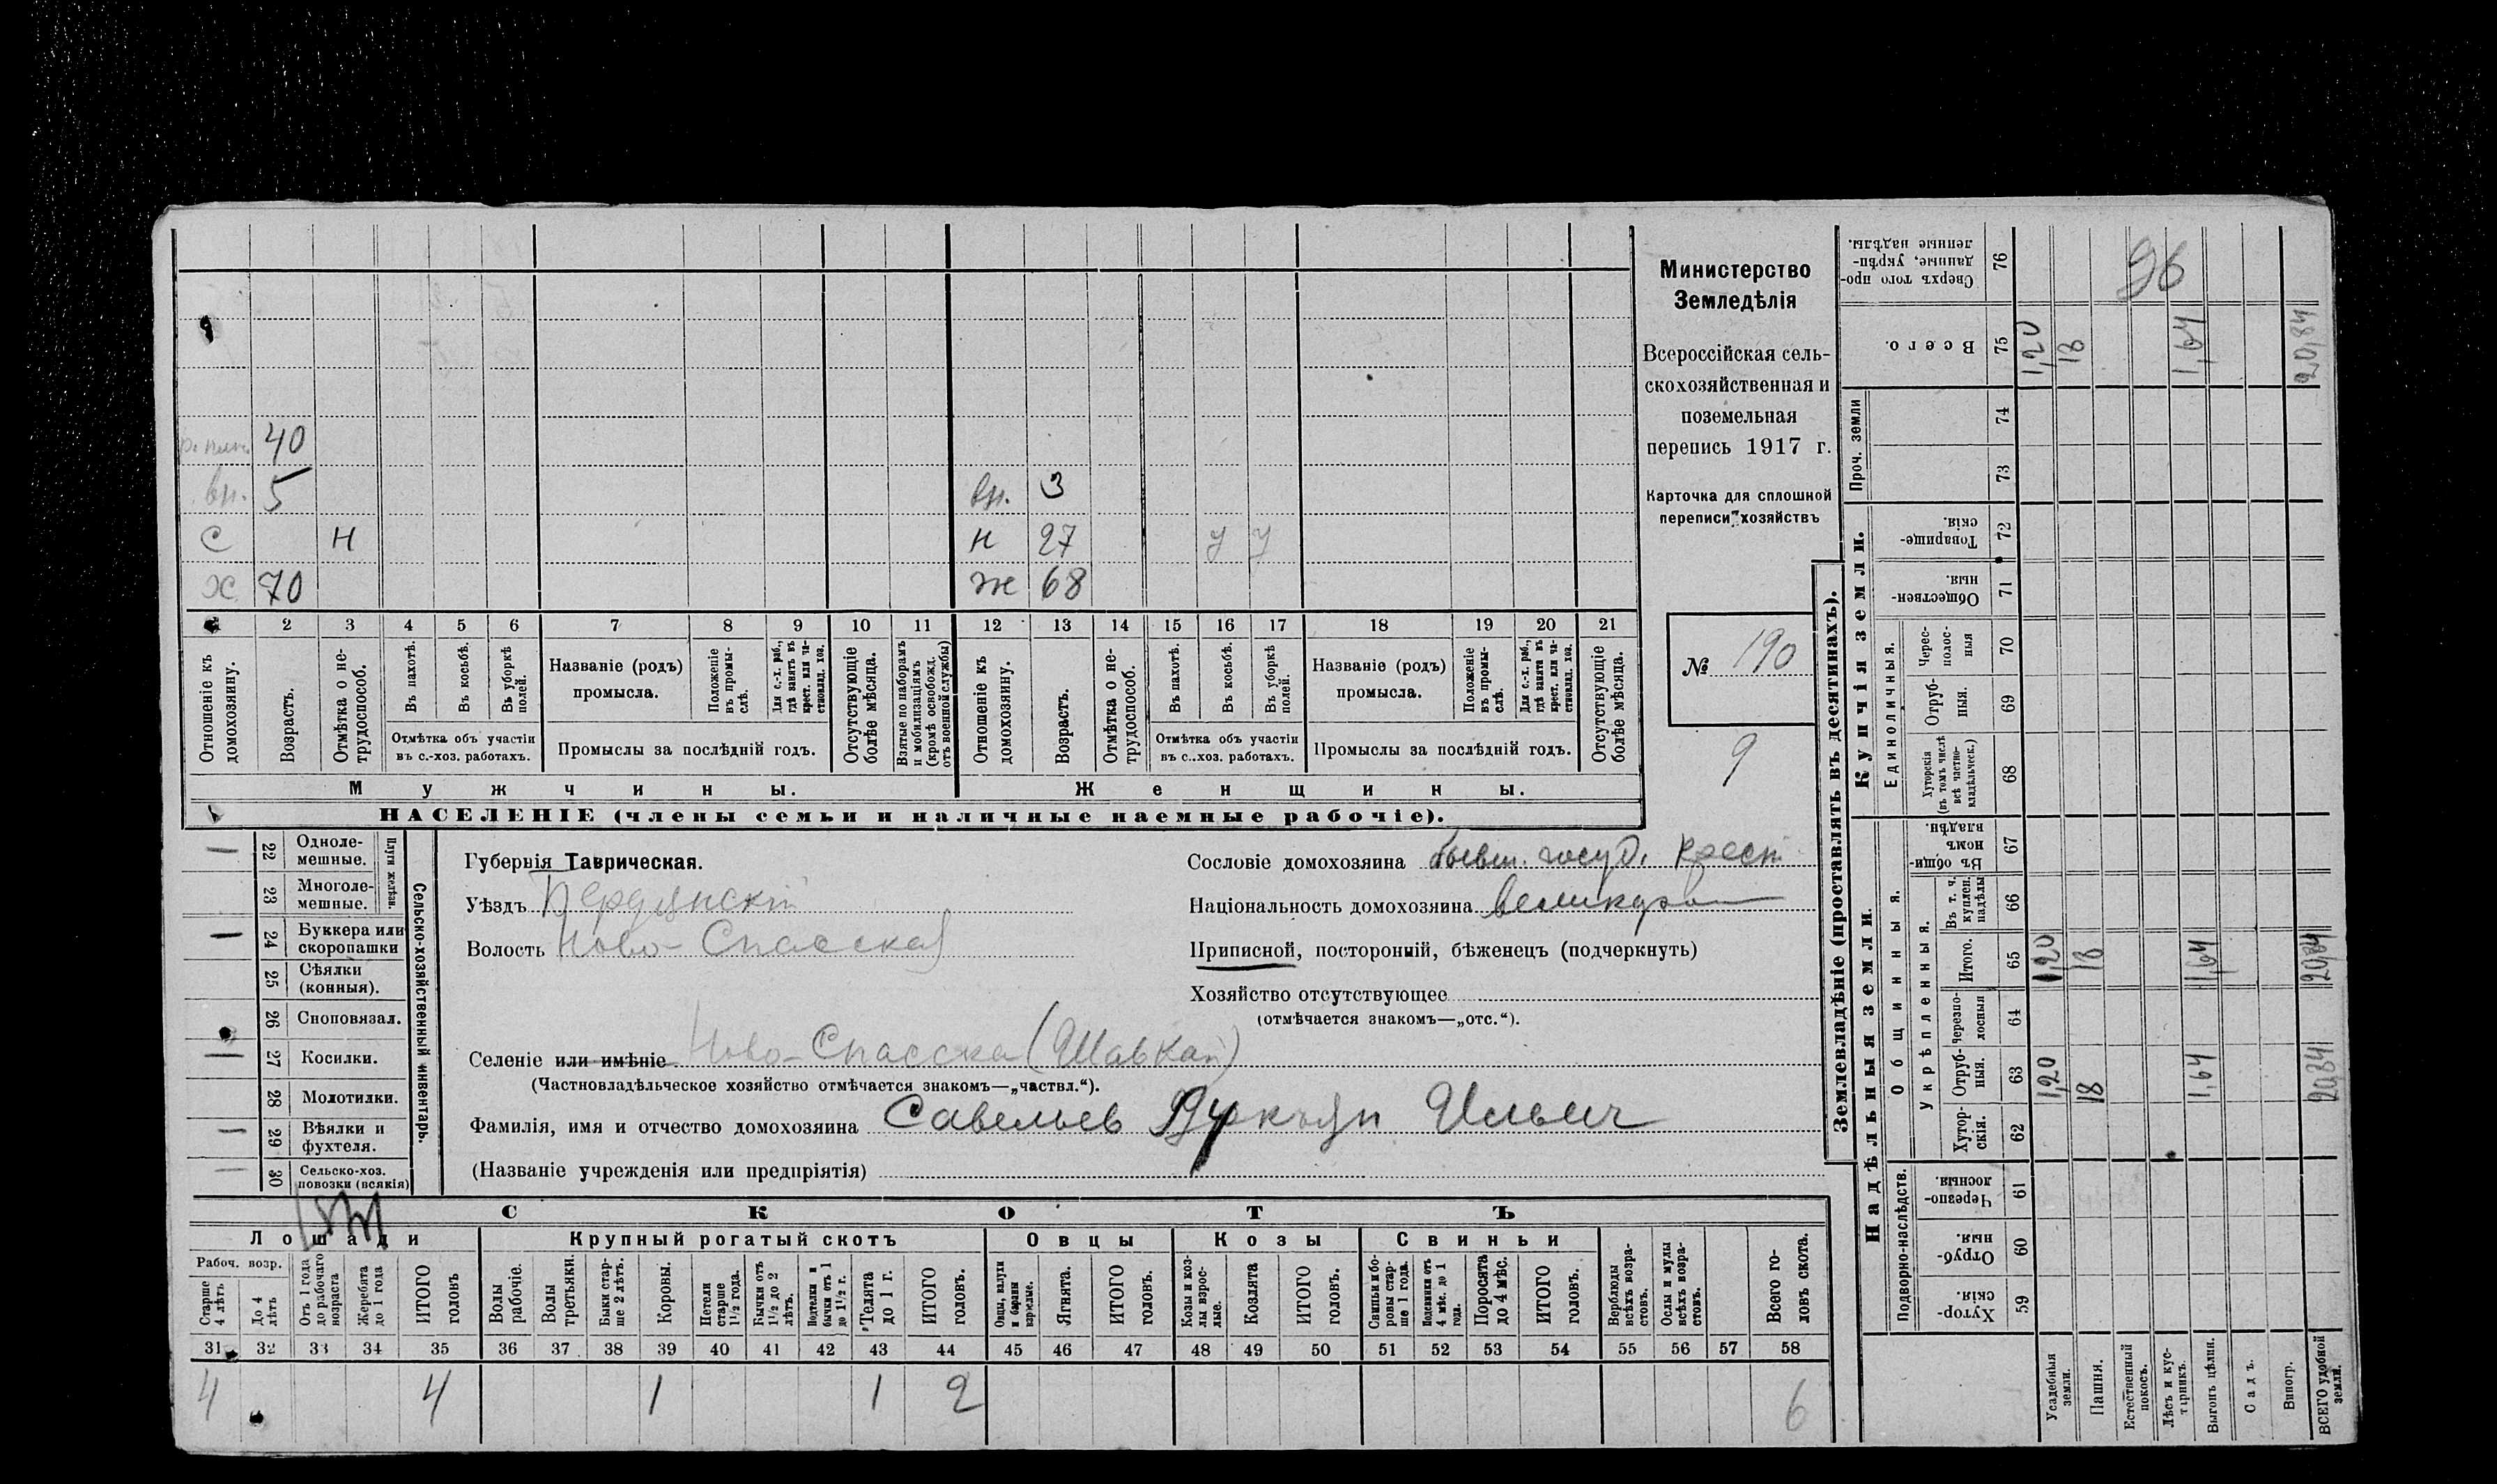 р. плен. 40
вн. 5 вн. 3
С Н н 27 У У
Х 70 ж 68
1 2 3 4 5 6 7 8 9 10 11 12 13 14 15 16 17 18 19 20 21
Отношеніе къ домохозяину.
Возрастъ.
Отмѣтка о не-
трудоспособ.
Въ пахотѣ.
Въ косьбѣ.
Въ уборкѣ
полей.
Отмѣтка объ участіи
въ с.-хоз. работахъ.
Названіе (родъ)
промысла.
Положеніе
въ промы-
слѣ.
Для с.-х. раб.,
гдѣ занятъ въ
крест. или ча-
стновлад. хоз.
Промыслы за послѣдній годъ.
Отсутствующіе
болѣе мѣсяца.
Взятые по наборамъ
и мобилизаціямъ
(кромѣ освобожд.
отъ военной службы)
Отношеніе къ
домохозяину.
Возрастъ.
Отмѣтка о не-
трудоспособ.
Въ пахотѣ.
Въ косьбѣ.
Въ уборкѣ
полей.
Отмѣтка объ участіи
въ с..хоз. работахъ.
Названіе (родъ)
промысла.
Положеніе
въ промы-
слѣ.
Для с.-х. раб.,
гдѣ занята въ
крест. или ча-
стновлад. хоз.
Промыслы за послѣдній годъ.
Отсутствующіе
болѣе мѣсяца.
Мужчины. Женщины.
НАСЕЛЕНІЕ (члены семьи и наличные наемные рабочіе).
Министерство
Земледѣлія
Всероссійская сель-
скохозяйственная и
поземельная
перепись 1917 г.
Карточка для сплошной
переписи хозяйствъ
№ 190
9
22 Одноле-
мешные.
23 Многоле-
мешные.
Плуги желѣзн.
24 Буккера или
скоропашки
25 Сѣялки
(конныя).
26 Сноповязал.
27 Косилки.
28 Молотилки.
29 Вѣялки и
фухтеля.
30 Сельско-хоз.
повозки (всякія)
Сельско-хозяйственный инвентарь.
Губернія Таврическая.
Уѣздъ Бердянскій
Волость Ново-Спасская
Селеніе или имѣніе Ново-Спасска (Шавкай)
(Частновладѣльческое хозяйство отмѣчается знакомъ—„частвл.“).
Фамилія, имя и отчество домохозяина Савельев Лукьян Ильич
(Названіе учрежденія или предпріятія)
Сословіе домохозяина бывш. госуд. крест
Національность домохозяина великоросс
Приписной, посторонній, бѣженецъ (подчеркнуть)
Хозяйство отсутствующее
(отмѣчается знакомъ—„отс.“).
СКОТЪ
Лошади Крупный рогатый скотъ Овцы Козы Свиньи
Рабоч. возр.
Старше
4 лѣтъ
До 4
лѣтъ
Отъ 1 года
до рабочаго
возраста
Жеребята
до 1 года
ИТОГО
головъ
Волы
рабочіе.
Волы
третьяки.
Быки стар-
ше 2 лѣтъ.
Коровы.
Нетели
старше
1½ года.
Бычки отъ
1½ до 2
лѣтъ.
Подтелки и
бычки отъ 1
до 1½ г.
Телята
до 1 г.
ИТОГО
головъ.
Овцы, валухи
и бараны
взрослые.
Ягнята.
ИТОГО
головъ.
Козы и коз-
лы взрос-
лые.
Козлята
ИТОГО
головъ.
Свиньи и бо-
ровы стар-
ше 1 года.
Подсвинки отъ
4 мѣс. до 1
года.
Поросята
до 4 мѣс.
ИТОГО
головъ.
Верблюды
всѣхъ возра-
стовъ.
Ослы и мулы
всѣхъ возра-
стовъ.
Всего го-
ловъ скота.
31 32 33 34 35 36 37 38 39 40 41 42 43 44 45 46 47 48 49 50 51 52 53 54 55 56 57 58
4 4 1 1 2 6
Землевладѣніе (проставлять въ десятинахъ).
Надѣльныя земли. Купчія земли. Проч. земли
Подворно-наслѣдств.
Общинныя.
Укрѣпленныя.
Единоличныя.
59 Хутор-
скія.
60 Отруб-
ныя.
61 Черезпо-
лосныя.
62 Хутор-
скія.
63 Отруб-
ныя. 1,20 18 1,64 20,84
64 Черезпо-
лосныя
65 Итого. 1,20 18 1,64 20,84
66 Въ т. ч.
куплен.
надѣлы
67 Въ общи-
номъ
владѣн.
68 Хуторскія
(въ томъ числѣ
всѣ частно-
владѣльческ.)
69 Отруб-
ныя.
70 Черес-
полос-
ныя
71 Обществен-
ныя.
72 Товарище-
скія.
73
74
75 Всего. 1,20 18 1,64 20,84
76 Сверхъ того про-
данные, укрѣп-
ленные надѣлы.
96
Усадебныя
земли.
Пашня.
Естественный
покосъ.
Лѣсъ и кус-
тарникъ.
Выгонъ цѣлин.
Садъ.
Виногр.
ВСЕГО удобной
земли.